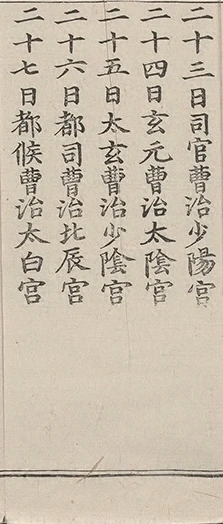 二十三日司官曹治少陽宮
二十四日玄元曹治太陰宮
二十五日太玄曹治少陰宮
二十六日都司曹治北辰宮
二十七日都候曹治太白宮